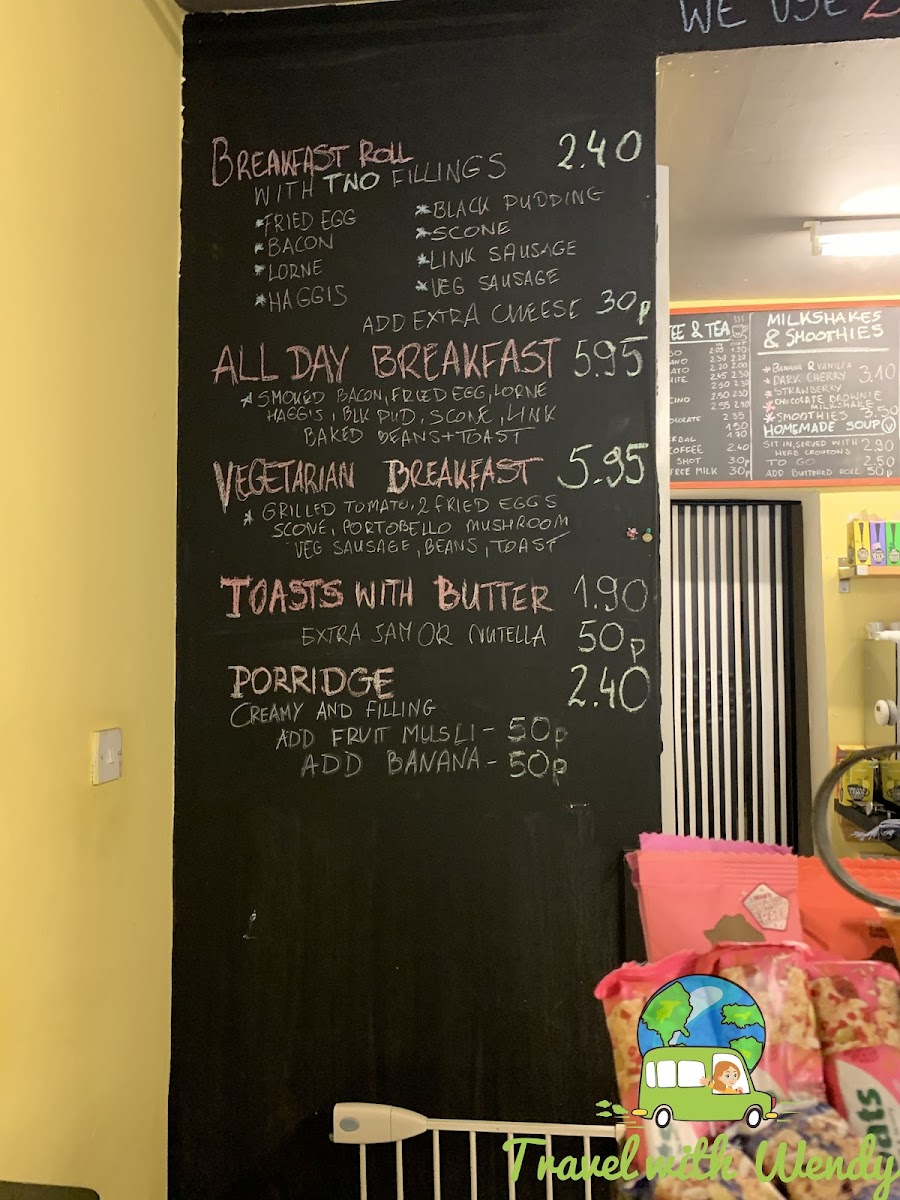 WE USE
BREAKFAST ROLL 2.40
WITH TWO FILLINGS
*FRIED EGG
*BACON
*LORNE
*HAGGIS
*BLACK PUDDING
*SCONE
*LINK SAUSAGE
*VEG SAUSAGE
ADD EXTRA CHEESE 30p
ALL DAY BREAKFAST 5.95
*SMOKED BACON, FRIED EGG, LORNE
HAGGIS, BLK PUD, SCONE, LINK
BAKED BEANS + TOAST
VEGETARIAN BREAKFAST 5.95
* GRILLED TOMATO, 2 FRIED EGGS
SCONE, PORTOBELLO MUSHROOM
VEG SAUSAGE, BEANS, TOAST
TOASTS WITH BUTTER 1.90
EXTRA JAM OR NUTELLA 50p
PORRIDGE 2.40
CREAMY AND FILLING
ADD FRUIT MULSLI - 50p
ADD BANANA - 50p
& TEA
COFFEE 2.40
SHOT 30p
FREE MILK 30p
MILKSHAKES
& SMOOTHIES
*BANANA & VANILLA
*DARK CHERRY 3.10
*STRAWBERRY
*CHOCOLATE BROWNIE
MILKSHAKE
*SMOOTHIES 3.50
HOMEMADE SOUP V
SIT IN, SERVED WITH 2.90
HERB CROUTONS
TO GO 2.50
ADD BUTTERD ROLL 50p
Travel with Wendy